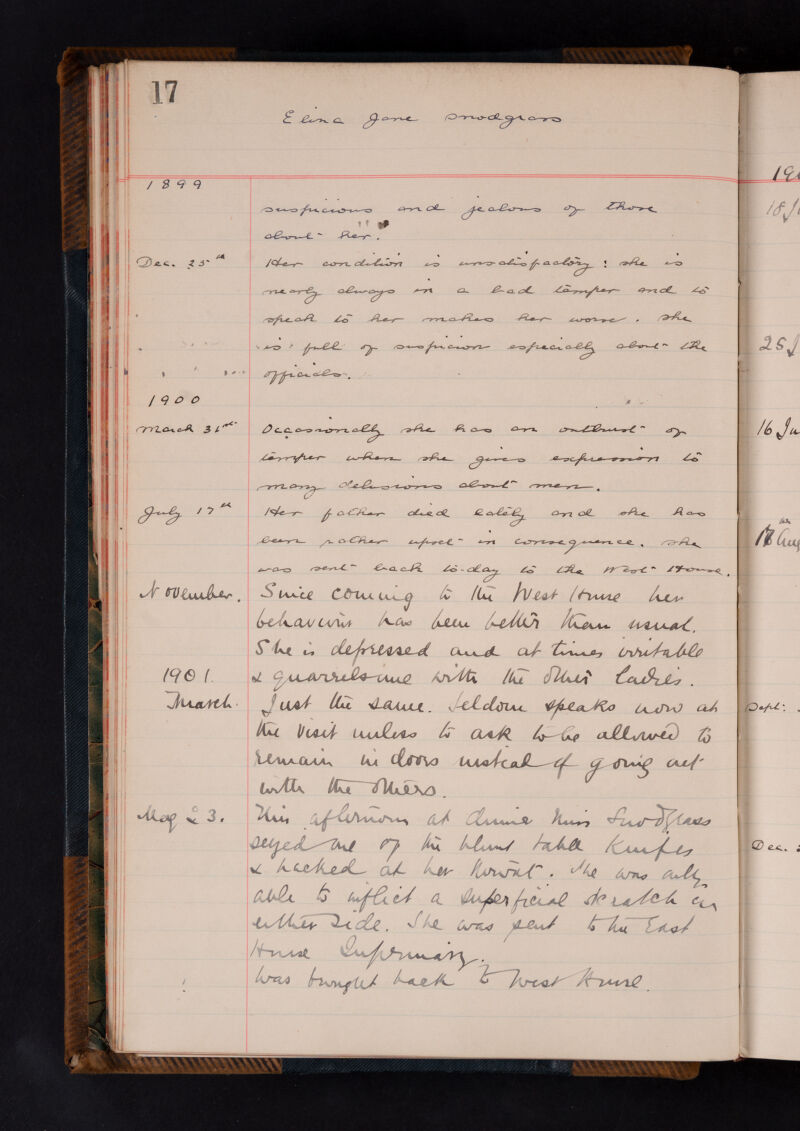 17
Elina Jane Snodgrass
1899
suspicious and jealous of those
about her.
Dec. 25th Her condition is unsatisfactory: she is
nearly always in a bad temper and to
speak to her makes her worse. She
is full of suspicion especially about the
officials.
1900
March 31st Occasionally she has an outburst of
temper when she gives expression to
many delusions about men.
July 17th Her father died lately and she has
been rather upset in consequence. She
was sent back to-day to the West House.
November. Since coming to the West House her
behaviour has been better than usual.
She is depressed and at times irritable
1901. & quarrelsome with the other ladies.
March. Just the same. Seldom speaks now at
the visit unless to ask to be allowed to
remain in doors instead of going out
with the others.
May 23. This afternoon at dinner Miss Snodgrass
seized one of the blunt table knifes
& hacked at her throat. She was only
able to inflict a superficial skratch on
either side. She was sent to the East
House Infirmary.
Was brought back to West House.
190
18 J
25 J
16 Ju
17th Aug
Sept.
Dec. 2